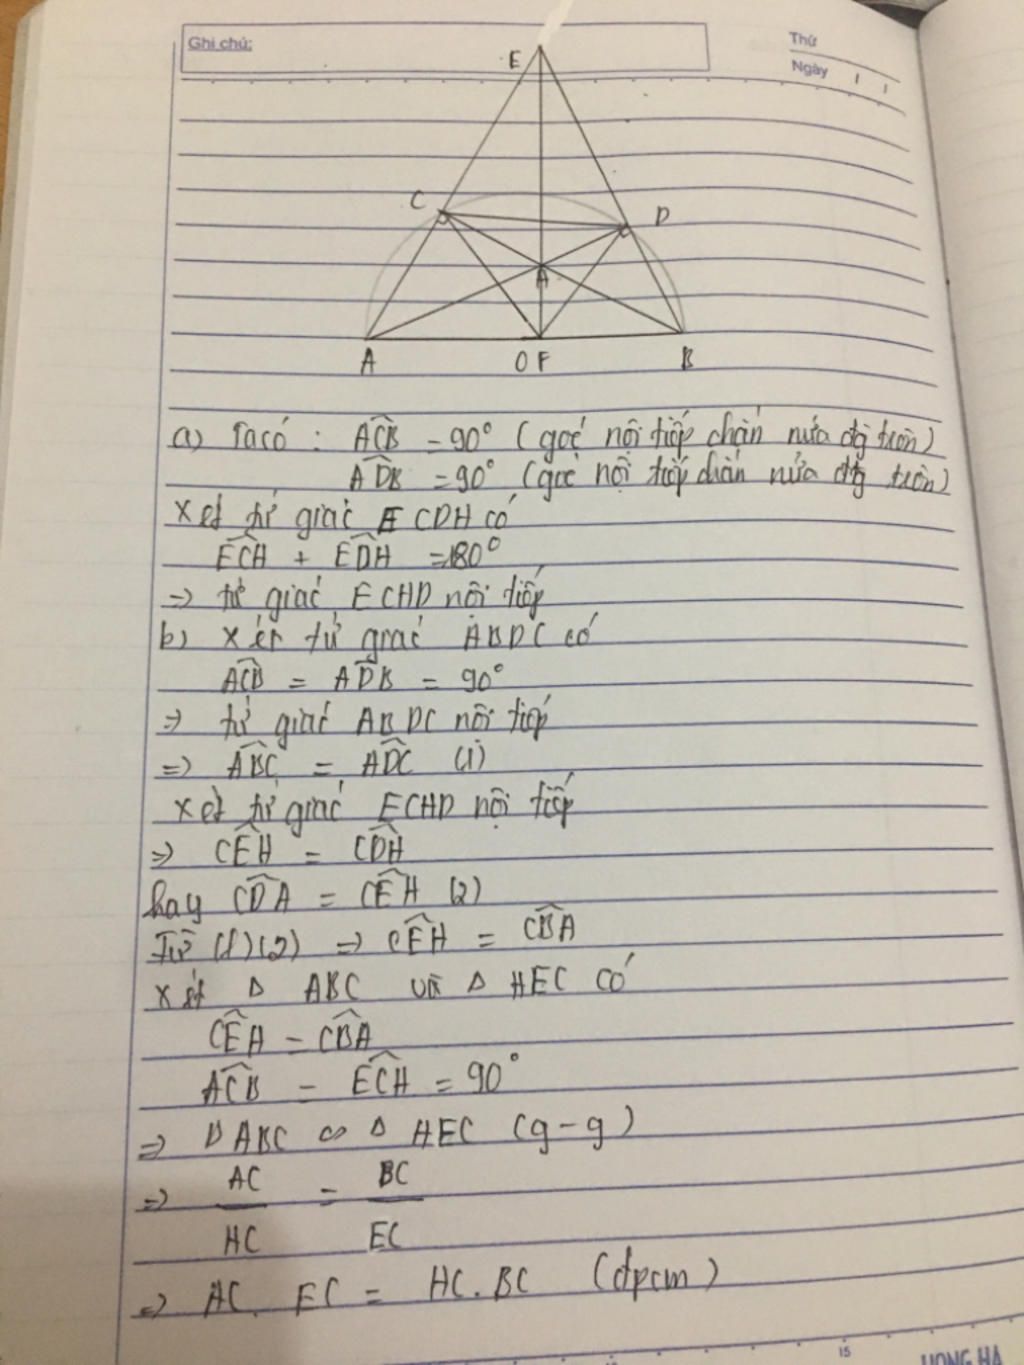 Ghi chú:
Thứ
Ngày / /
E
C
D
A
A
O F
B
a) Ta có : ACB = 90° (góc nội tiếp chắn nửa đg tròn)
ADB = 90° (góc nội tiếp chắn nửa đg tròn)
xét tứ giác E CDH có
ECH + EDH = 180°
=> tứ giác ECHD nội tiếp
b) xét tứ giác ABDC có
ACB = ADB = 90°
=> tứ giác ABDC nội tiếp
=> ABC = ADC (1)
xét tứ giác ECHD nội tiếp
=> CEH = CDH
hay CDA = CEH (2)
Từ (1)(2) => CEH = CBA
xét Δ ABC và Δ HEC có
CEH = CBA
ACB = ECH = 90°
=> Δ ABC ∽ Δ HEC (g-g)
=> AC/HC = BC/EC
=> AC. EC = HC. BC (đpcm)
15
HONG HA